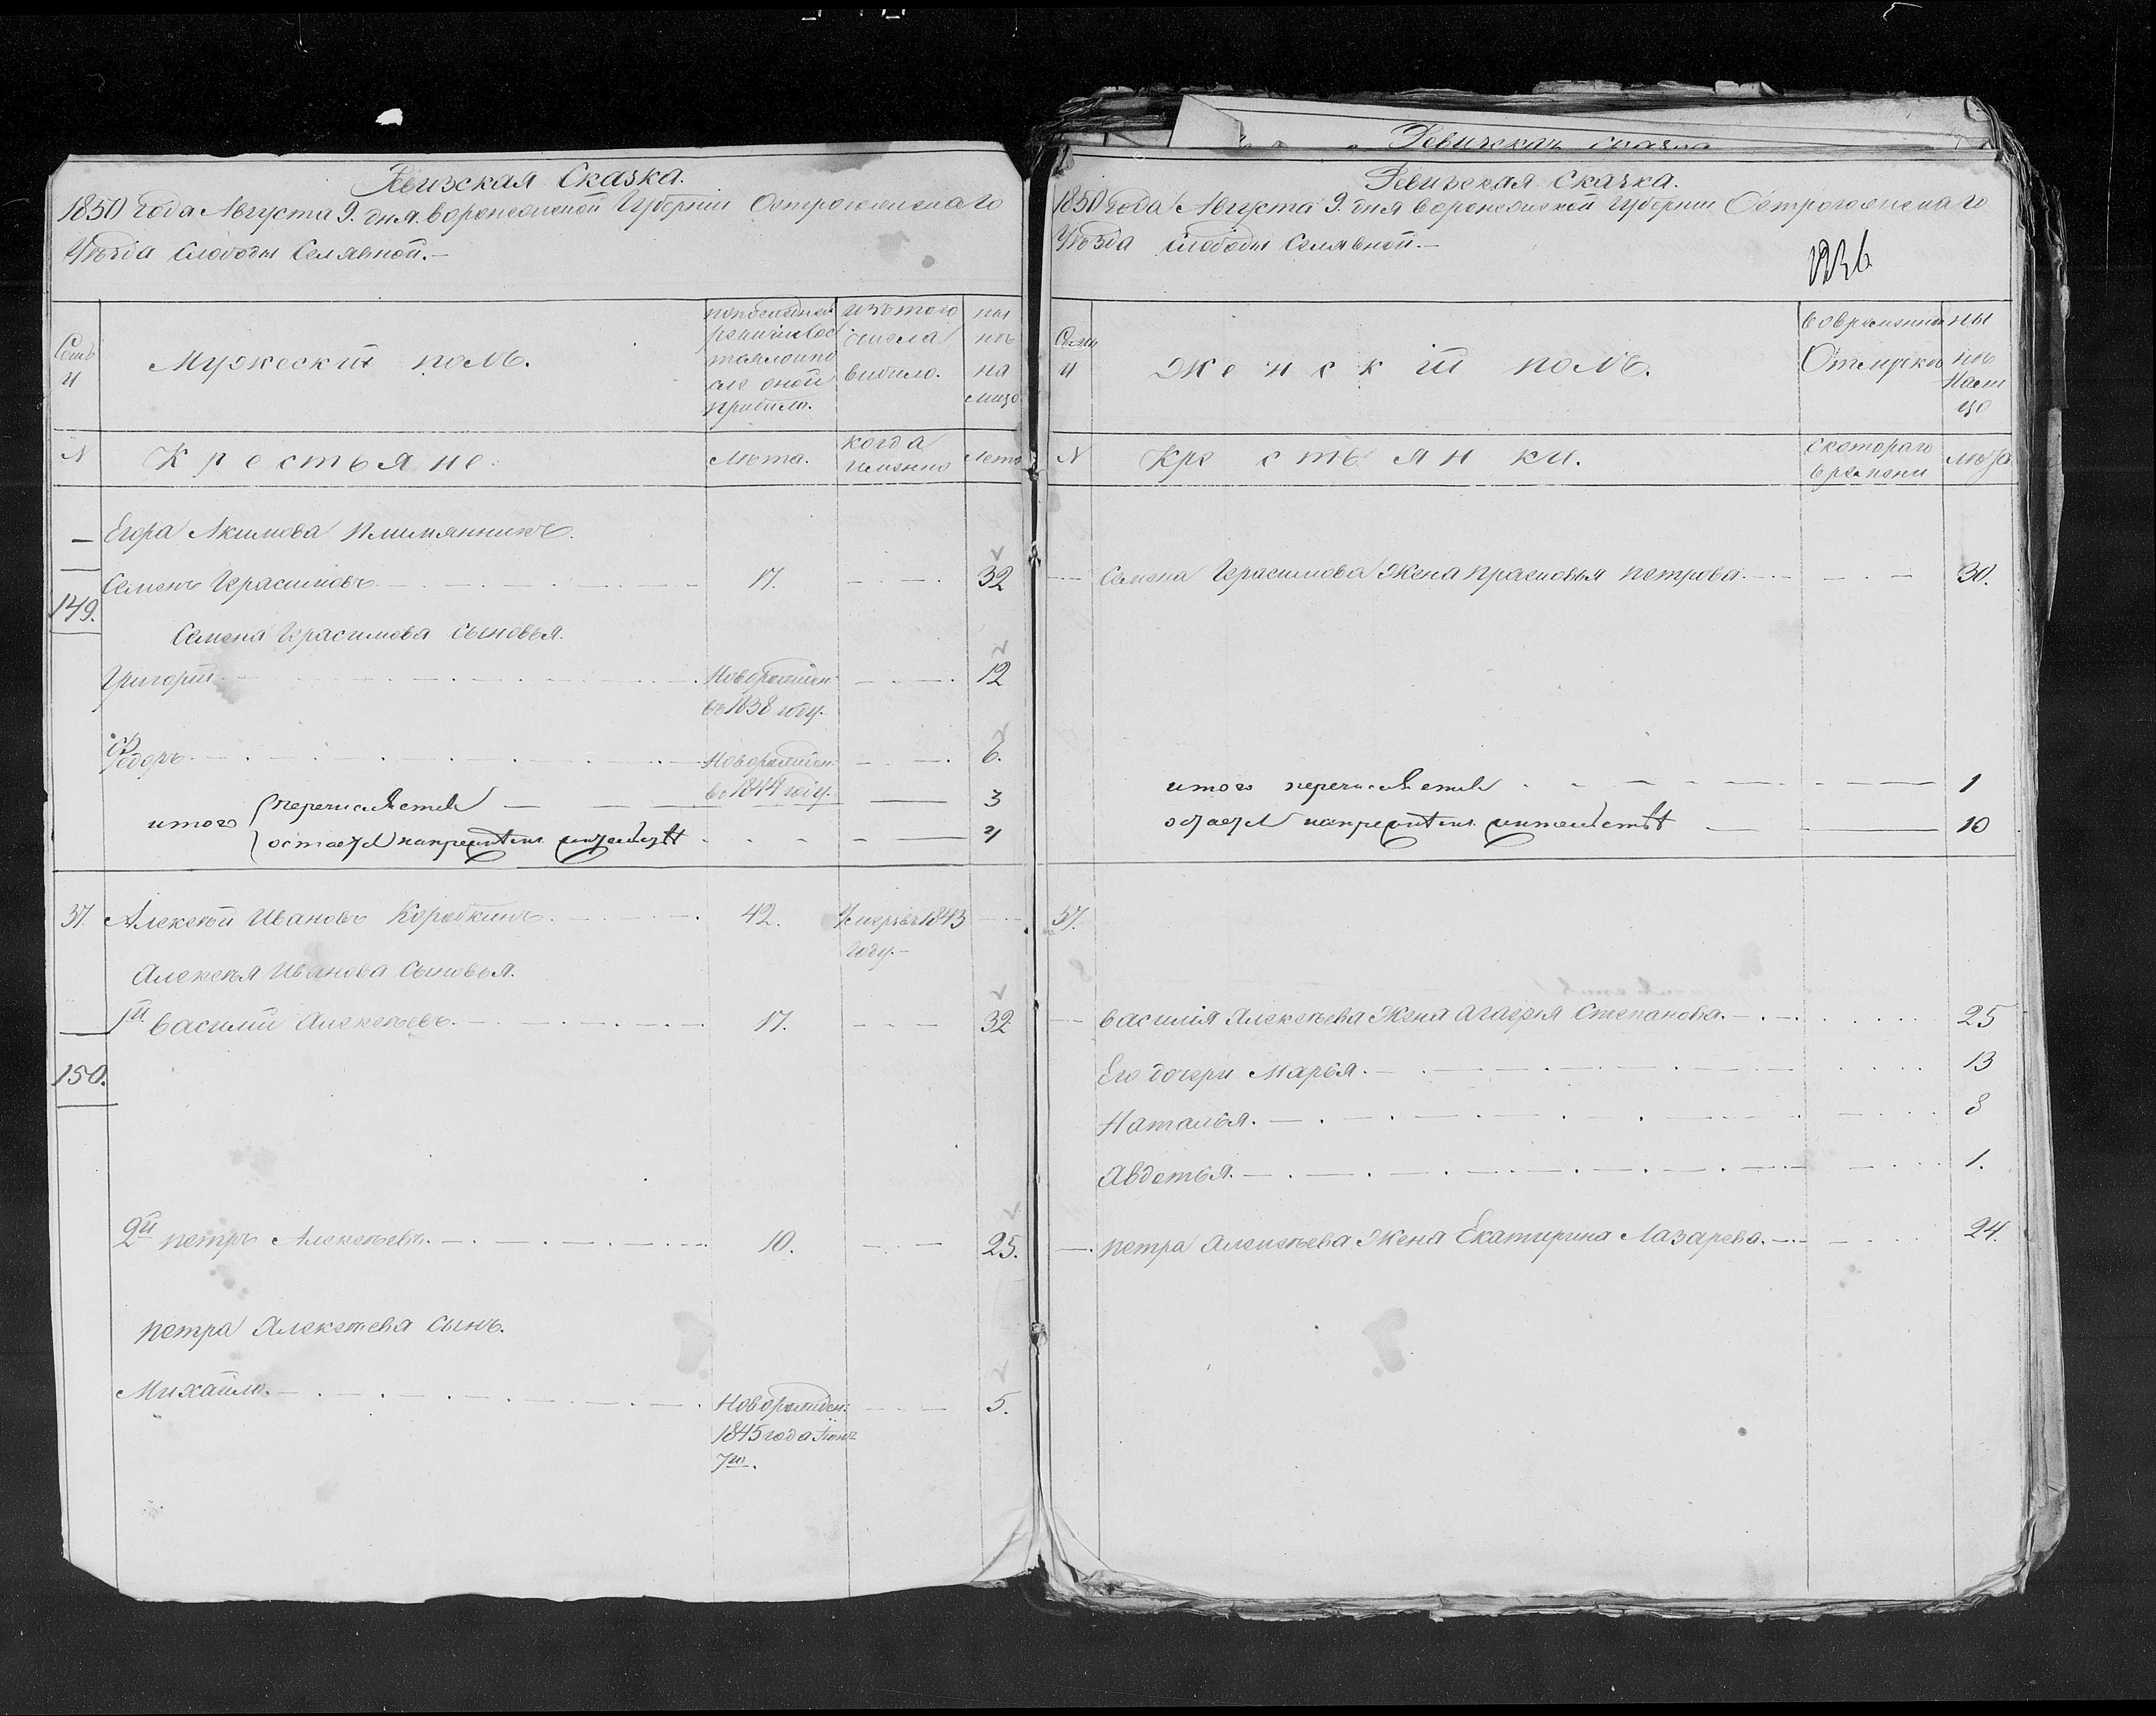 Ревизская Сказка.
1850 года Августа 9. дня воронежской Губернии Острогожскаго
Уѣзда слободы Селявной.—
Семьи
Мужеский полъ.
по последней ревизии состояло и после оной прибыло.
изъ того числа выбыло.
ны не на лицо
N
Крестьяне.
Лѣта.
когда имянно
Лета
— Егора Акимова племянникъ.
Семенъ Герасимовъ. 17. 32
149.
Семена Герасимова сыновья.
Григорий. Новорожден: 12
въ 1838 году.
Федоръ. Новорожден: 6.
въ 1844 году.
итого перечисляется 3
остается 4
37. Алексѣй Ивановъ Коробкинъ. 42. Умеръ въ 1843
году.—
Алексѣя Иванова сыновья.
1й василий Алексѣевъ. 17. 32
150.
2й петръ Алексѣевъ. 10. 25.
петра Алексѣева сынъ.
Михайло. Новорожден: 5.
1845 года
7го.
Ревизская сказка
Ревизская Сказка.
1850 года Августа 9. дня воронежской Губернии Острогожскаго
Уѣзда слободы Селявной.—
Семьи
Женский полъ.
во временной Отлучкѣ
ны не на лицо
N
Крестьянки.
с котораго времени
лѣта
Семена Герасимова Жена прасковья петрова. 30.
итого перечисляется 1
остается 10
37.
василия Алексѣева Жена Агафья Степанова. 25
Его дочери Марья. 13
Наталья. 8
Авдотья. 1.
петра Алексѣева Жена Екатерина Лазарева. 24.